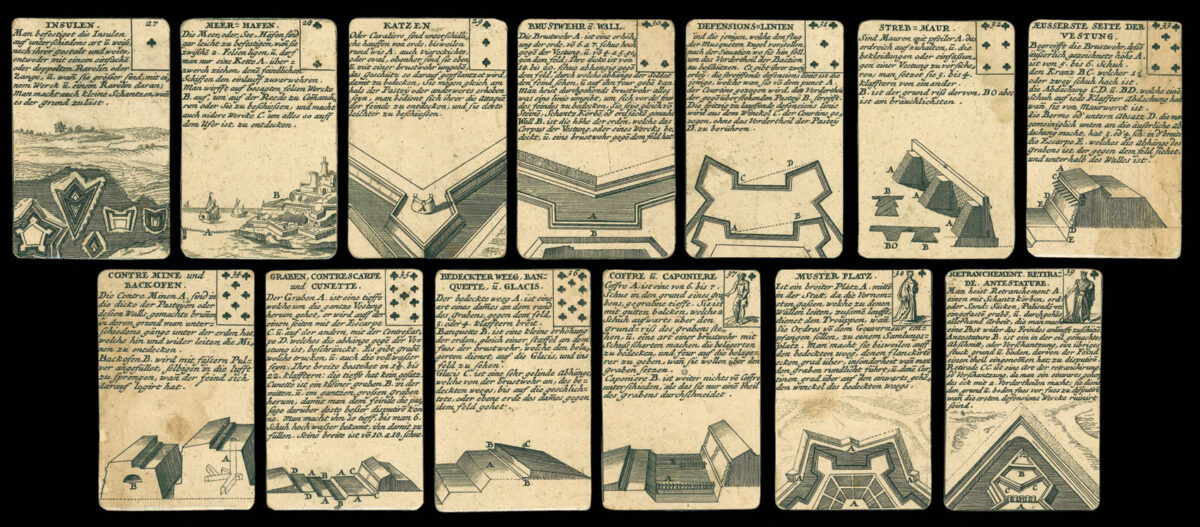 INSULEN. 27
Man befestiget die Insulen
auf unterschiedene art ü. weise,
nach ihrer gestalt und weite,
entweder mit einem einfachē
oder doppelten Ravelin oder
Zange, ü. wañ sie größer sind, mit ei-
nem Werck ü. einem Ravelin daran;
Man macht auch kleine Schantzen, wañ
es der grund zuläst.
MEER-HAFEN. 28
Die Meer, oder See-Häfen sind
gar leicht zu befestigen, wañ sie
zwischē 2. Felsen ligen ü. darf
man nur eine Kette A. über-
zwerch ziehen, denē feindlichen
Schiffen den einlauff zuverwehren.
Man wirfft auf besagten felsen Wercke
B. auf, um auf der Reede zu Comāndi-
ren oder Sie zu beschüssen, und macht
auch nidere Wercke C. um alles so auf
dem Ufer ist, zu entdecken.
A
B
C
KATZEN 29
Oder Cavaliers sind unterschidli-
che hauffen von erde, bisweilen
rund wie A. auch viereckichte
und oval, obenher sind sie eben
ü. mit einer brustwehr umgebē,
das geschütz so darauf gepflantzt wird,
damit zu bedecken. Sie mögen gleich ein
hals der Pastey oder anderwerts erhoben
seyn, man bedient sich ihrer die attaqué
der feinde zu entdecken, und sie desto
leichter zu beschüessen.
A
BRUSTWEHR ü. WALL. 30
Die Brustwehr A. ist eine erhöh-
ung der erde, vō 6. a 7. schue hoch
gegē der Vestung, ü. vō 4. a 5. ge-
gen dem feld, Ihre dicke ist von
18. biß 20. schue abhängig gegē
dem feld, durch welche abhänge der Soldat
den feind sehen, ü. auf ihn feur gebē kan.
Man heist durchgehends brustwehr alles
was eine linie umgibt, um sich vor die feür
der feinde zu bedecken, als wie gleich sind
Steine, Schantz-Körbe, od erdsäcke gemacht.
Wall B. ist die höhe der erden, welche das
Corpus der Vestung, oder eines Wercks be-
deckt, ü. eine brustwehr gegē dem feld hat.
A
B
DEFENSIONS-LINIEN 31
sind die jenigen, welche den flug
der Musqueten kugel vorstellen,
nach der situation wo sie hin soll,
um das Vordertheil der Bastion
zu beschützen. Es gibt ihrer zwey
erley; die streiffende defensions linie ist die
jenige, welche man, wie in dem winckel A.
der Courtine gezogen wird, das Vordertheil
der gegē überstehenden Pastey B. streifft.
Die spitzig zu lauffende defensions linie
wird aus dem Winckel C. der Courtine ge-
zogen, ohne das Vordertheil der Pastey
D. zu berühren.
C
D
A
B
STREB-MAUR. 32
Sind Mauren mit pfeiler A. das
erdreich auf zu halten, ü. die
bekleidungen oder einfassun-
gen einer Vestung zu verstärc-
ken; man setzet sie 3. biß 4.
klafftern von einander.
B. ist der grund rißz derven. BO aber
ist am bräuchlichsten.
A
A
A
B
BO B
ÄUSSERSTE SEITE DER VESTUNG. 33
Begreifft die Brustwehr, deßen
äuserlich gezeichnete höhe A.
ist von 5. biß 6. Schuh.
den Kranz B.C. welcher 1½
oder zwey schuh hoch ist.
die Abdachung C.D. ü. B.D. welche eine
schuh auf iede Klaffter Abdachung hat
wan sie von Maurwerck ist.
die Berme od' untern Absatz D. die man
gemeiniglich unten an die äuserliche Ab-
dachung macht, hat 3. od' 4. schū in d' breite
die Escarpe E. welches die abhänge des
grabens ist, der gegen dem feld siehet,
und unterhalb des Walles ist.
A
B
C
D
E
CONTRE MINE und BACKOFEN. 34
Die Contre Minen A. sind in
die dicke der Pasteyen oder
deßen Walls, gemachte brüñen
in deren grund man unter-
schiedene gänge unter der erden hat,
welche hin und wider leiten die Mi-
nen zu entdecken.
Backofen B. wird mit fäßern Pul-
ver angefüllet, selbigen in die lufft
zu sprengen, wañ der feind sich
darauf logirt hat.
A
B
GRABEN, CONTRESCARPE und CUNETTE. 35
Der Graben A. ist eine tieffe
welche um die gantze Vestung
herum gehet, er wird auf der
einen seiten mit der Escarpe
C. ü. auf der andern mit der Contrescar-
pe D. welches die abhänge gegē der Ve-
stung ist, beschränckt. Es gibt grabē
welche trucken, ü. auch die voll waßer
seyn. Ihre breite bestehet in 14. biß
22. klafftern, die tieffe hat kein gesetz.
Cunette ist ein kleiner graben B. in der
mitten, ü. im gantzen großen graben
herum, damit man dem feinde die pas-
sage darüber desto beßer disputirē kön-
ne. Man macht ihn so tieff, biß man 6.
Schuh hoch waßer bekomt, ihn damit zu
füllen. Seine breite ist vō 10. a 18. schue.
D A B A C
D A B A C
BEDECKTER WEEG, BANQUETTE, ü. GLACIS. 36
Der bedeckte weeg A. ist von
erde eines dañes an dem rand
des grabens, gegen dem feld,
3. oder 4. klafftern breit.
Banquette B. ist eine kleine erhöhung
der erden, gleich einer staffel an dem
fuß der brustwehr, welche den belä-
gerten dienet, auf die Glacis, und ins
feld zu sehen.
Glacis C. ist eine sehr gelinde abhänge,
welche von der brustwehr an, des be-
deckten weegs, biß auf die geschlich-
tete, oder ebene erde des dañes, gegen
dem feld gehet.
A
B
C
COFFRE ü. CAPONIERE 37
Coffre A. ist eine von 6. biß 7.
Schue in den grund eines gra-
bens, gegrabne tieffe. Sie ist
mit guten balcken, welche 2
schuh aufwarts über den
grund-riß des grabens ste-
hen, ü. eine art einer brustwehr mit
Schuß scharten machen, die belägerten
zu bedecken, und feur auf die belage-
rer zu geben, wañ sie wollen über den
graben setzen.
Caponiere B. ist weiter nichts vō Coffre
unterschieden, als das sie nur eine theil
des grabens durchschneidet.
A
B
MUSTER PLATZ. 38
ist ein breiter Platz A. mitten
in der Stadt, da die Vornem-
sten gaßen, welche zu denen
Wällen leiten, zusamē lauffen
dienet den Trouppen, wañ
Sie Ordres vō dem Gouverneur em-
pfangen sollen, zu einem Samlungs-
Platz. Man macht sie bisweilen auf
dem bedeckten weeg, denen flancken-
ecken, grad über, insonderheit wañ man
den graben rundlicht führt; ü. denē Cur-
tinen grad über auf den einwarts gehē-
den winckel des bedeckten weegs.
A
A
A
RETRANCHEMENT. RETIRADE. ANTESTATURE. 39
Man heist Retranchement A.
einen mit Schantz-körben, erd
oder Sand-Säcken, Palissaden
eingefaste grabē, ü. durchgehēs
allerhand Arbeit, die man macht
eine Post wider des Feindes anlauff zuschützē.
Antestature B. ist ein in der eil gemachter
Abschnitt, oder Verschantzung, ein übriges
stuck grund ü. boden, darvon der Feind
einen theil eingenomēn hat, zu disputirē.
Retirade C. ist eine art der retranchirung
od' Verschantzung, da man ein einwarts gehen-
des eck mit 2. Vordertheilen macht; sie dient
den grund ü. boden fus vor fus zu disputirē,
wan die ersten defensions Wercke ruinirt
seind.
A
B
C